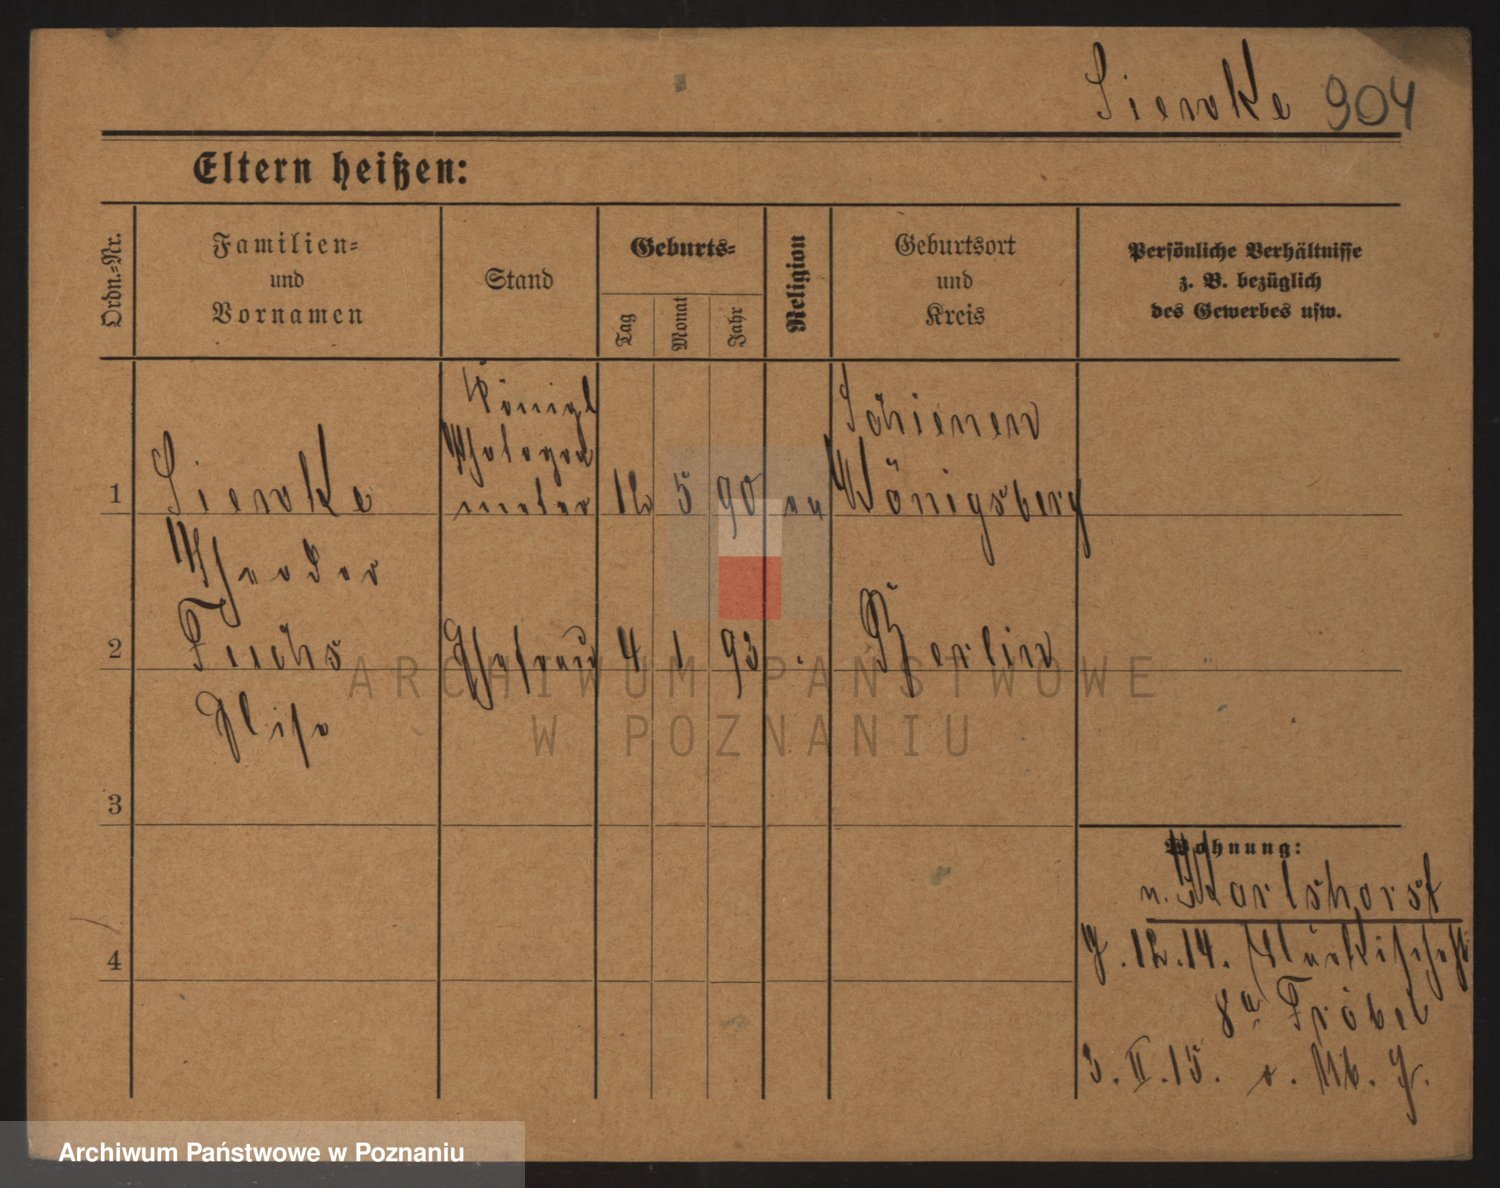 Siewke 904
Eltern heißen:
Ordn.-Nr.
Familien-
und
Vornamen
Stand
Geburts-
Tag
Monat
Jahr
Religion
Geburtsort
und
Kreis
Persönliche Verhältnisse
z. B. bezüglich
des Gewerbes usw.
Königl
1 Siewke 12 5 90 ev Königsberg
Theodor
2 Fuchs Ehefrau 4 1 93 Berlin
Elise
3
Wohnung:
n. Karlshorst
4
12.14.
8a Fröbel
3.II.15.
ARCHIWUM PAŃSTWOWE
W POZNANIU
Archiwum Państwowe w Poznaniu